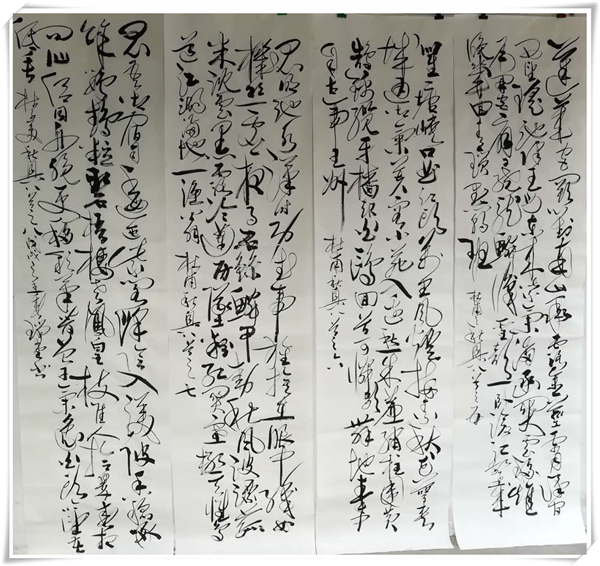 蓬莱宫阙对南山承露金茎霄汉间
西望瑶池降王母东来紫气满函关云移雉
尾开宫扇日绕龙鳞识圣颜一卧沧江惊岁
晚几回青琐点朝班 杜甫秋兴八首之五
瞿塘峡口曲江头万里风烟接素秋花萼夹
城通御气芙蓉小苑入边愁珠帘绣柱围黄
鹄锦缆牙樯起白鸥回首可怜歌舞地秦中
自古帝王州 杜甫秋兴八首之六
昆明池水汉时功武帝旌旗在眼中织女
机丝虚夜月石鲸鳞甲动秋风波漂菰
米沉云黑露冷莲房坠粉红关塞极天惟鸟
道江湖满地一渔翁 杜甫秋兴八首之七
昆吾御宿自逶迤紫阁峰阴入渼陂香稻啄
馀鹦鹉粒碧梧栖老凤凰枝佳人拾翠春相
问仙侣同舟晚更移彩笔昔曾干气象白头吟望苦
低垂 杜甫秋兴八首之八 戊戌之 书